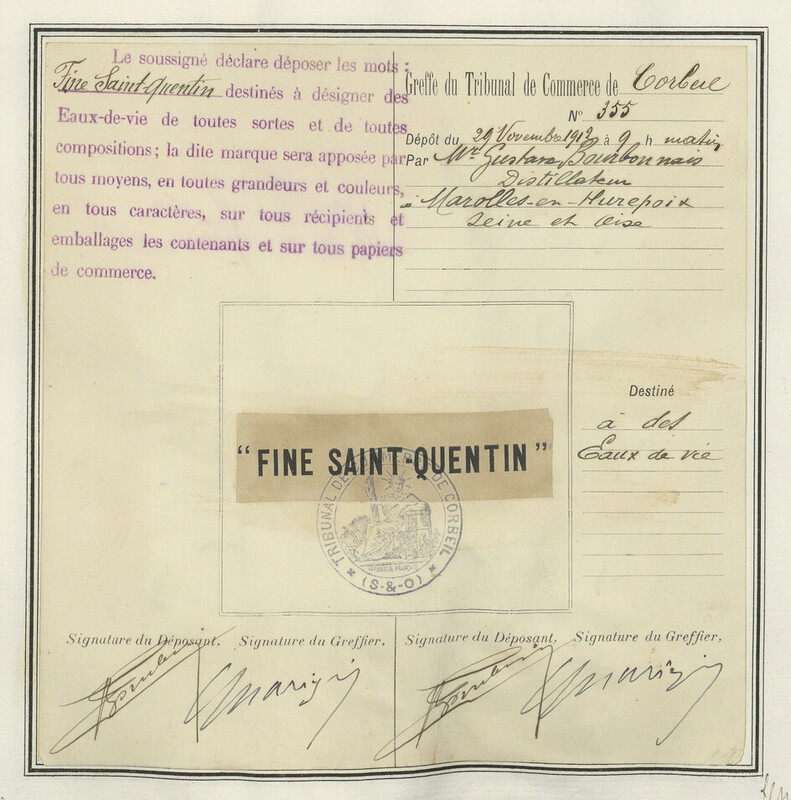 Le soussigné déclare déposer les mots :
Fine Saint-Quentin destinés à désigner des
Eaux-de-vie de toutes sortes et de toutes
compositions ; la dite marque sera apposée par
tous moyens, en toutes grandeurs et couleurs,
en tous caractères, sur tous récipients et
emballages les contenants et sur tous papiers
de commerce.
Greffe du Tribunal de Commerce de Corbeil
N° 355
Dépôt du 29 Novembre 1912 à 9 h matin
Par Mr. Gustave Bourbonnais
Distillateur
à Marolles-en-Hurepoix
Seine et Oise
Destiné
à des
Eaux de vie
"FINE SAINT-QUENTIN"
TRIBUNAL DE COMMERCE DE CORBEIL
(S-&-O)
Signature du Déposant. Signature du Greffier.
Signature du Déposant. Signature du Greffier.